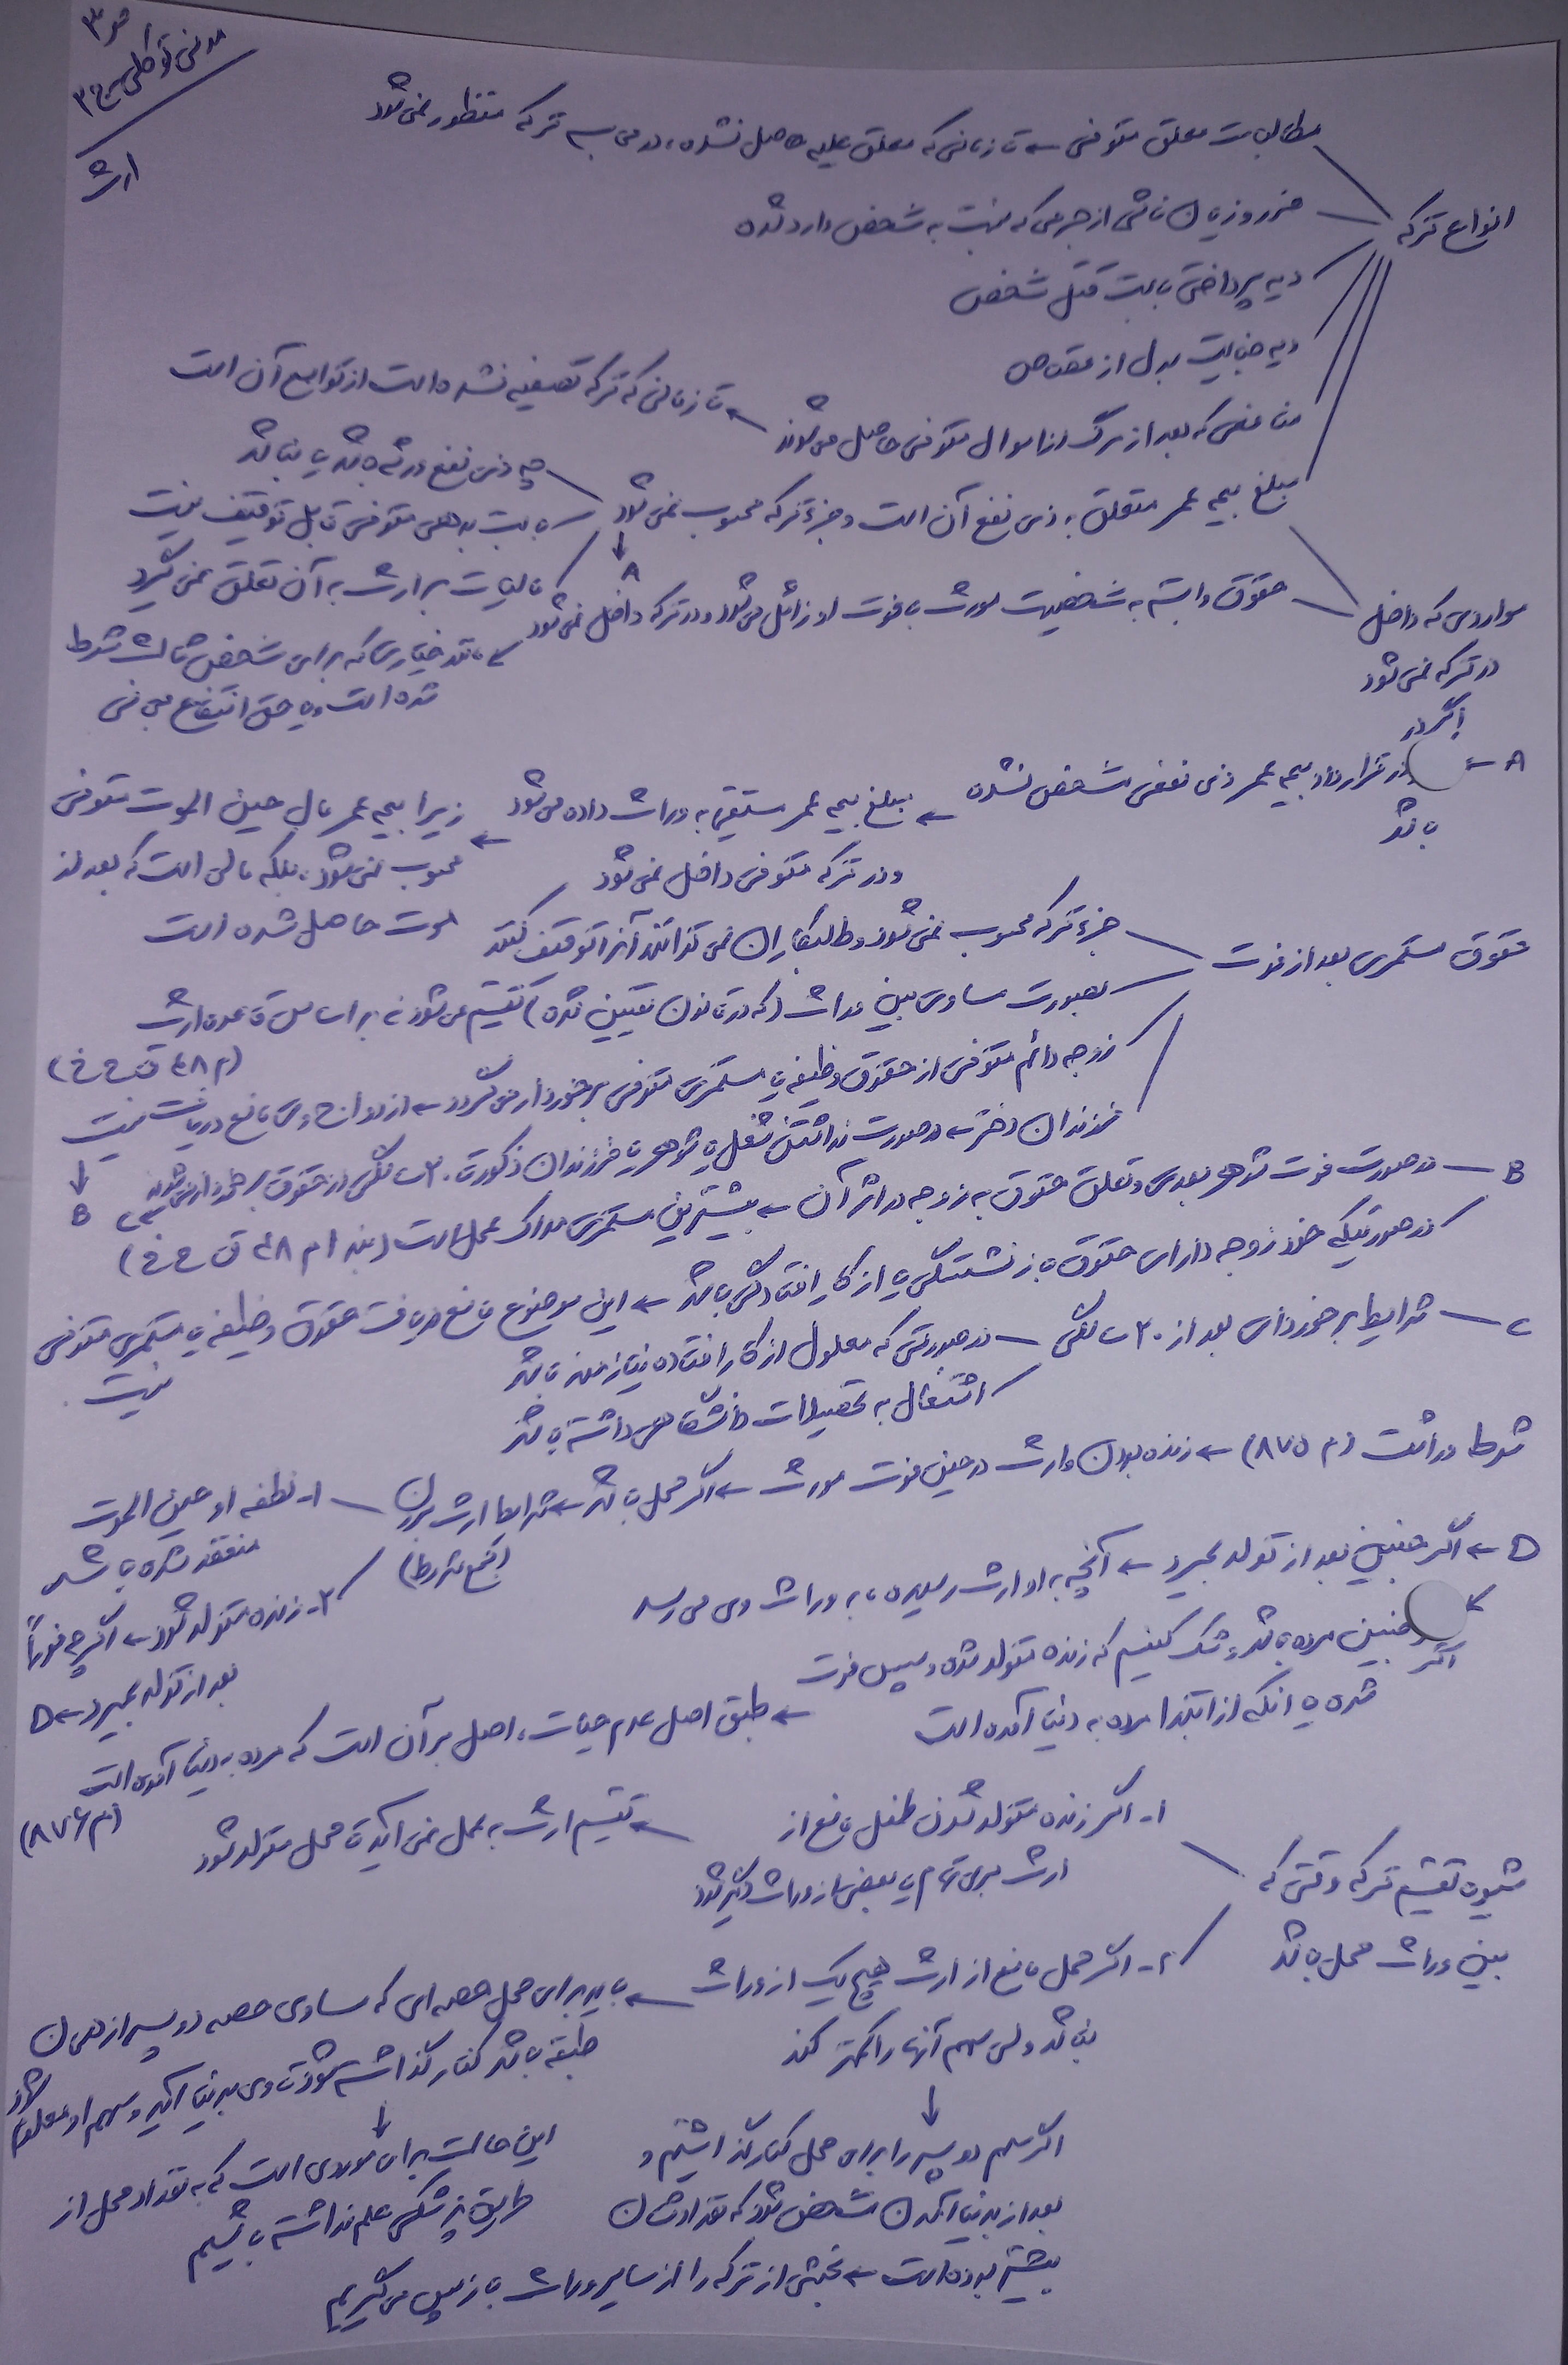 ص ۳
مدنی توکلی ج ۳
ارث
مطالبات معلق متوفی ← تا زمانی که معلق علیه حاصل نشده، در محاسبه ترکه منظور نمی‌شود
انواع ترکه
ضرر و زیان ناشی از جرمی که نسبت به شخص وارد شده
دیه پرداختی بابت قتل شخص
دیه جنایت بدل از قصاص
منافعی که بعد از مرگ از اموال متوفی حاصل می‌شوند ← تا زمانی که ترکه تصفیه نشده است از توابع آن است
مبلغ بیمه عمر متعلق به ذی نفع آن است و جزء ترکه محسوب نمی‌شود
چه ذی نفع ورثه باشد یا نباشد
بابت بدهی متوفی قابل توقیف نیست
مالیات بر ارث به آن تعلق نمی‌گیرد
A
مواردی که داخل
در ترکه نمی‌شود
حقوق وابسته به شخصیت مورث با فوت او زائل می‌شود و در ترکه داخل نمی‌شود
مانند خیاری که برای شخص ثالث شرط
شده است و یا حق انتفاع
A ← اگر در
در قرارداد بیمه عمر ذی نفعی مشخص نشده
باشد
← مبلغ بیمه عمر مستقیم به وراث داده می‌شود
و در ترکه متوفی داخل نمی‌شود
← زیرا بیمه عمر مال حین الموت متوفی
محسوب نمی‌شود، بلکه مالی است که بعد از
موت حاصل شده است
حقوق مستمری بعد از فوت
جزء ترکه محسوب نمی‌شود و طلبکاران نمی‌توانند آنرا توقیف کنند
بصورت مساوی بین وراث (که در قانون تعیین شده) تقسیم می‌شود نه بر اساس قاعده ارث
(م ۴۸ ق ح خ)
زوجه دائم متوفی از حقوق وظیفه یا مستمری متوفی برخوردار می‌گردد ← ازدواج وی مانع دریافت نیست
↓
B
فرزندان دختر ← در صورت نداشتن شغل یا شوهر یا فرزندان ذکور تا ۲۰ سالگی از حقوق برخوردار می‌شوند
B — در صورت فوت شوهر بعدی و تعلق حقوق به زوجه در اثر آن ← بیشترین مستمری ملاک عمل است (بند ۱ م ۴۸ ق ح خ)
در صورتیکه خود زوجه دارای حقوق بازنشستگی یا از کار افتادگی باشد ← این موضوع مانع دریافت حقوق وظیفه یا مستمری متوفی
نیست
C — شرایط برخورداری بعد از ۲۰ سالگی — در صورتی که معلول از کار افتاده نیازمند باشد
اشتغال به تحصیلات دانشگاهی داشته باشد
شرط وراثت (م ۸۷۵) ← زنده بودن وارث در حین فوت مورث ← اگر حمل باشد ← شرایط ارث بردن
(جمع شروط)
۱- نطفه او حین الموت
منعقد شده باشد
۲- زنده متولد شود ← اگر چه فوراً
بعد از تولد بمیرد ← D
D ← اگر جنین بعد از تولد بمیرد ← آنچه به او ارث رسیده، به وراث وی می‌رسد
اگر جنین مرده باشد و شک کنیم که زنده متولد شده و سپس فوت
شده یا اینکه از ابتدا مرده به دنیا آمده است
← طبق اصل عدم حیات، اصل بر آن است که مرده به دنیا آمده است
(م ۸۷۶)
شیوه تقسیم ترکه وقتی که
بین وراث حمل باشد
۱- اگر زنده متولد شدن طفل مانع از
ارث بری تمام یا بعضی از وراث دیگر شود
← تقسیم ارث به عمل نمی آید تا حمل متولد شود
۲- اگر حمل مانع از ارث هیچ یک از وراث
نباشد ولی سهم آنها را کمتر کند
← باید برای حمل حصه ای که مساوی حصه دو پسر از همان
طبقه باشد کنار گذاشته شود تا وی بدنیا آید و سهم او معلوم شود
↓
اگر سهم دو پسر را برای حمل کنار گذاشتیم و
بعد از بدنیا آمدن مشخص شود که تعدادشان
بیشتر بوده است ← بخشی از ترکه را از سایر وراث باز پس می‌گیریم
↓
این حالت برای موردی است که به تعداد حمل از
طریق پزشکی علم نداشته باشیم